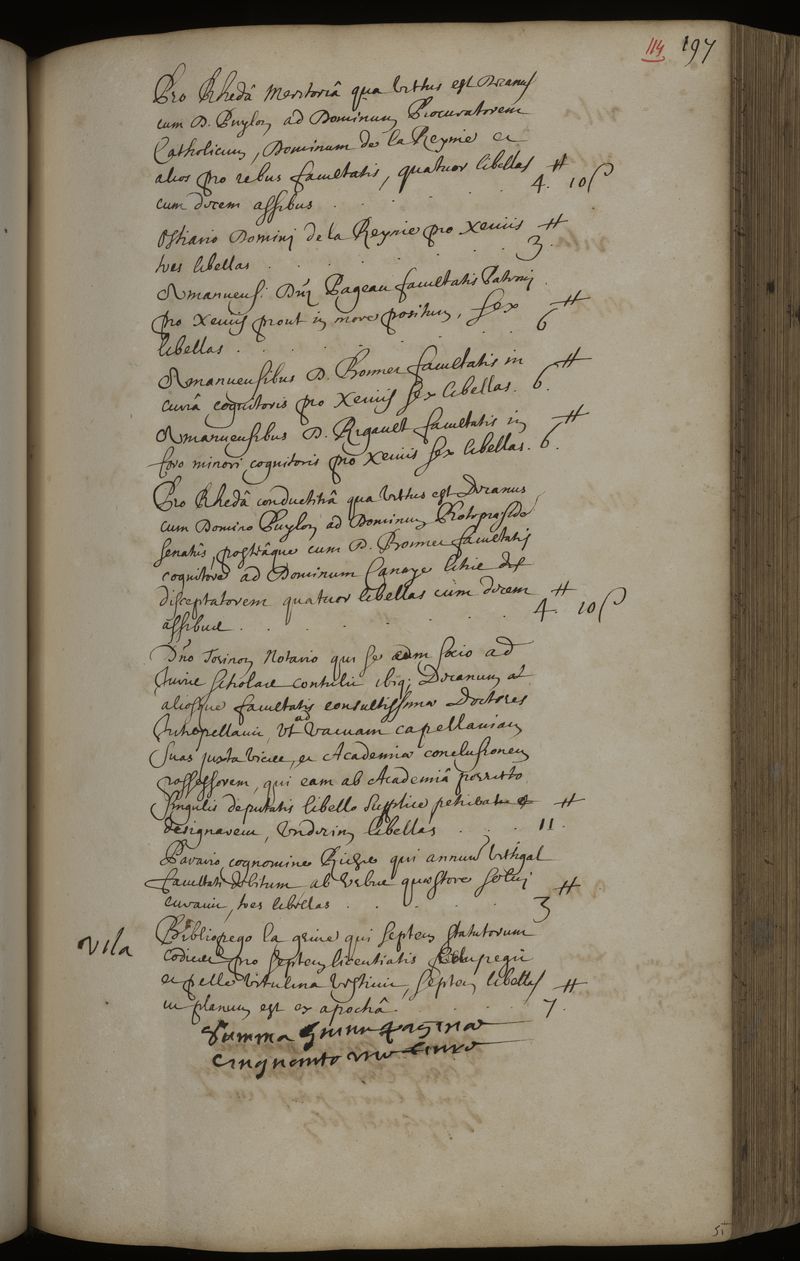 114 197
Pro Rhedâ meritoriâ qua vectus est Decanus
cum D. Puylon ad Dominum Procuratorem
Catholicum, Dominum de la Reynie et
alios pro rebus facultatis, quatuor libellas
cum decem assibus . . . . 4.ʰ 10 ſ
Ostiario Dominj de la Reynie pro Xeniis
tres libellas . . . . . 3.
Amanuens. Dnj Pageau facultatis Patronj
pro Xeniis prout in more positum, sex
libellas . . . . . 6
Amanuensibus D. Bonnet facultatis in
curiâ cognitoris pro Xeniis sex libellas. 6.
Amanuensibus D. Rigault facultatis in
foro minori cognitoris pro Xeniis sex libellas. 6.
Pro Rhedâ conductitiâ qua vectus est Decanus
cum Domino Puylon ad Dominum Protopræside
senatûs, posteâque cum D. Bonnet facultatis
cognitore ad Dominum Canaye litis
disceptatorem quatuor libellas cum decem
assibus . . . . . 4. 10 ſ
Dno Notario qui se cum socio ad
scholas contulit ibiq; Decanum
aliosque facultatis consultissimæ Doctores
vt ad vacuam capellaniam
suas juxta vices, et Academiæ conclusionem
possessorem, qui eam ab Academiâ
singulis deputatis libello supplice
designarent, vndecim libellas . . . 11.
cognomine qui annuum vectigal
facultati debitum ab vrbis quæstore solvj
curavit, tres libellas . . . . 3
vila
Bibliopego la qui septem statutorum
codices pro septem licentiatis compegit
et pelle vitulina vestivit, septem libellas
vt planum est ex apochâ . . . . 7.
Summa huius paginæ
cinquante vne livre
51